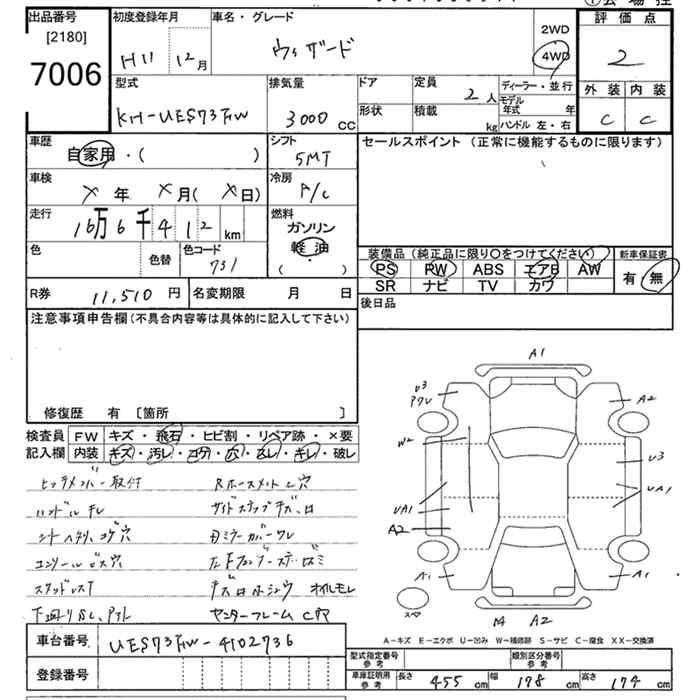 出品番号
[2180]
7006
初度登録年月
H11 12月
車名・グレード
ウィザード
2WD
4WD
評価点
2
外装 内装
C C
型式
KH-UES73FW
排気量
3000 CC
ドア
形状
定員
2人
積載
kg
ディーラー・並行
モデル年式 年
ハンドル 左・右
車歴
自家用・( )
シフト
5MT
セールスポイント (正常に機能するものに限ります)
車検
X年 X月( X日)
冷房
A/C
走行
16万6千412km
燃料
ガソリン
軽油
( )
色
色替
色コード
731
装備品(純正品に限り〇をつけてください)
PS PW ABS エアB AW
SR ナビ TV カワ
新車保証書
有 無
R券
11,510円
名変期限 月 日
後日品
注意事項申告欄(不具合内容等は具体的に記入して下さい)
修復歴 有 [箇所 ]
検査員
記入欄
FW キズ・飛石・ヒビ割・リペア跡・×要
内装 キズ・汚レ・コゲ・穴・スレ・キレ・破レ
ヒッチメンバー取付
Rホースメント穴
ハンドルキレ
シートヘタリ、コゲ穴
コンソールビス穴
スタッドレスT
オイルモレ
センターフレーム
A1
U3
A2
W2
U3
UA1
UA1
A2
A1
A1
スペア
A2
A-キズ E-エクボ U-凹み W-補修跡 S-サビ C-腐食 XX-交換済
車台番号
UES73FW-4102736
登録番号
型式指定番号
参考
類別区分番号
参考
車庫証明用
参考
長さ 455cm
幅 178cm
高さ 174cm